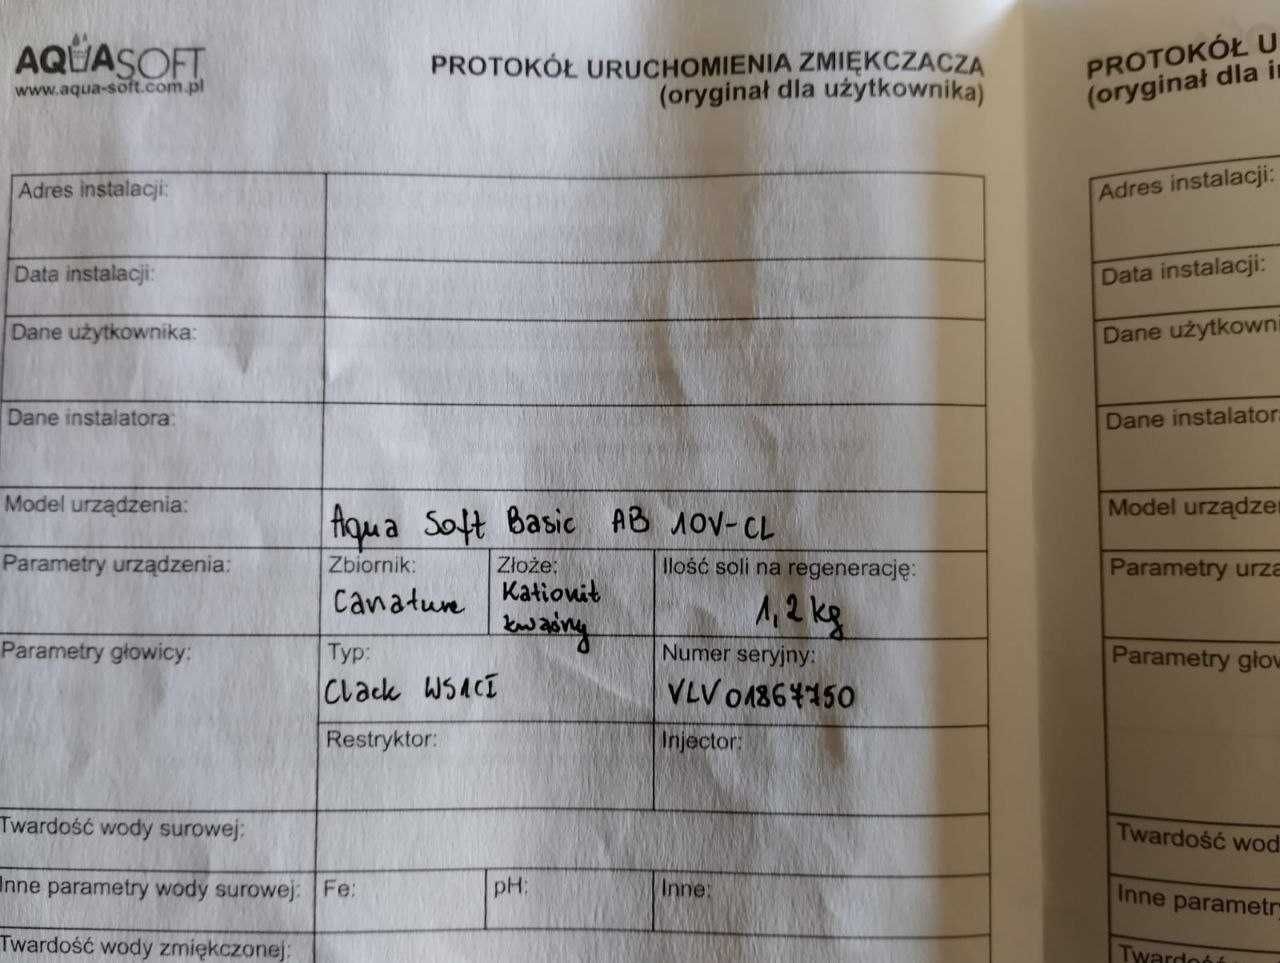 AQUASOFT
www.aqua-soft.com.pl
PROTOKÓŁ URUCHOMIENIA ZMIĘKCZACZA
(oryginał dla użytkownika)
Adres instalacji:
Data instalacji:
Dane użytkownika:
Dane instalatora:
Model urządzenia: Aqua Soft Basic AB 10V-CL
Parametry urządzenia: Zbiornik: Złoże: Ilość soli na regenerację:
Canature Kationit kwaśny 1,2 kg
Parametry głowicy: Typ: Numer seryjny:
Clack WS1CI VLV01867750
Restryktor: Injector:
Twardość wody surowej:
Inne parametry wody surowej: Fe: pH: Inne:
Twardość wody zmiękczonej:
PROTOKÓŁ U
(oryginał dla i
Adres instalacji:
Data instalacji:
Dane użytkowni
Dane instalator
Model urządze
Parametry urzą
Parametry głow
Twardość wod
Inne parametr